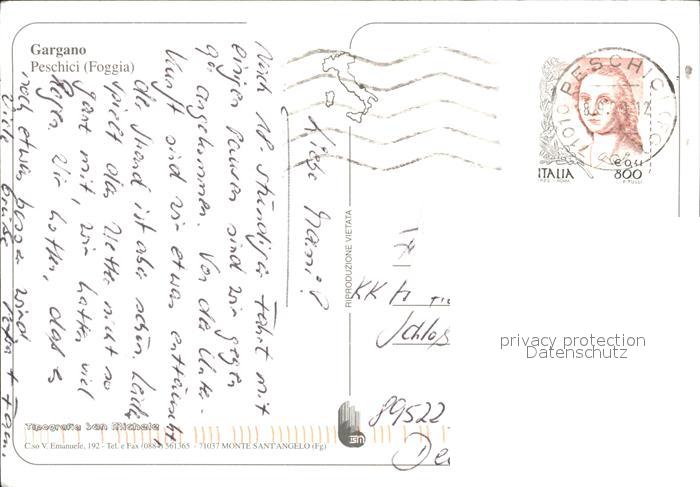 Gargano
Peschici (Foggia)
Liebe Mami!
Nach 18. stündiger Fahrt mit
einigen Pausen sind wir gegen
angekommen. Von der Unter-
kunft sind wir etwas enttäuscht
der Strand ist aber schön. Leider
spielt das Wetter nicht so
ganz mit, wir hatten viel
Regen. Wir hoffen, daß es
noch etwas besser wird
Viele Grüße
+ Fam.
RIPRODUZIONE VIETATA
71010 PESCHICI
€ 0,41
ITALIA 800
KKH
Schloß
89522
privacy protection
Datenschutz
Tipografia San Michele
C.so V. Emanuele, 192 - Tel. e Fax (0884) 561365 - 71037 MONTE SANT'ANGELO (Fg)